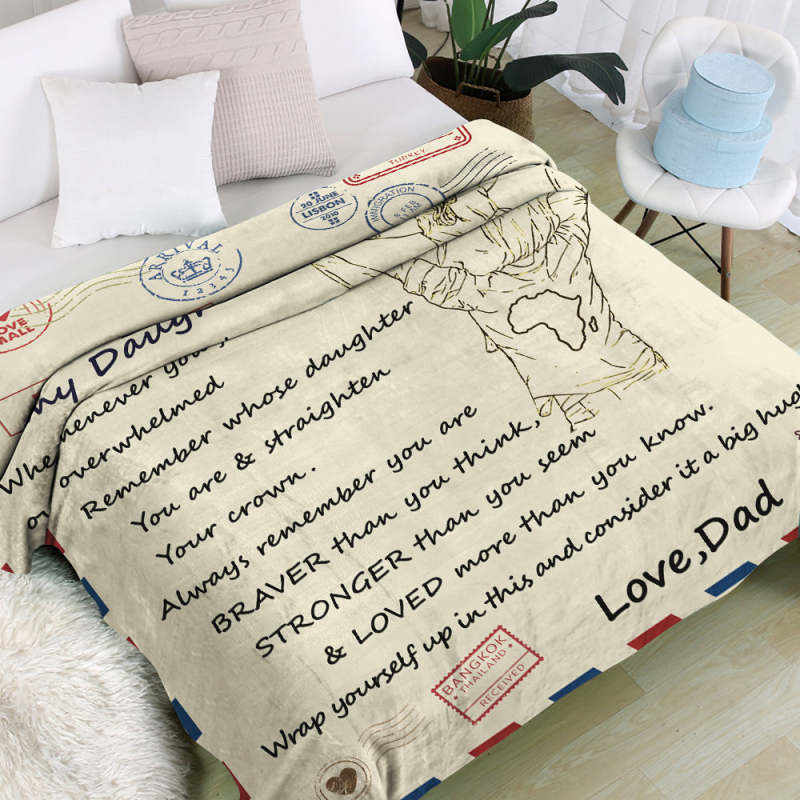 TURKEY
20 JUNE
LISBON
2010
IMMIGRATION
ARRIVAL
1 2 3 4 5
my Daugh
Whenever you
overwhelmed
Remember whose daughter
You are & straighten
Your crown.
Always remember you are
BRAVER than you think,
STRONGER than you seem
& LOVED more than you know.
Wrap yourself up in this and consider it a big hug
Love,Dad
BANGKOK
THAILAND
RECEIVED